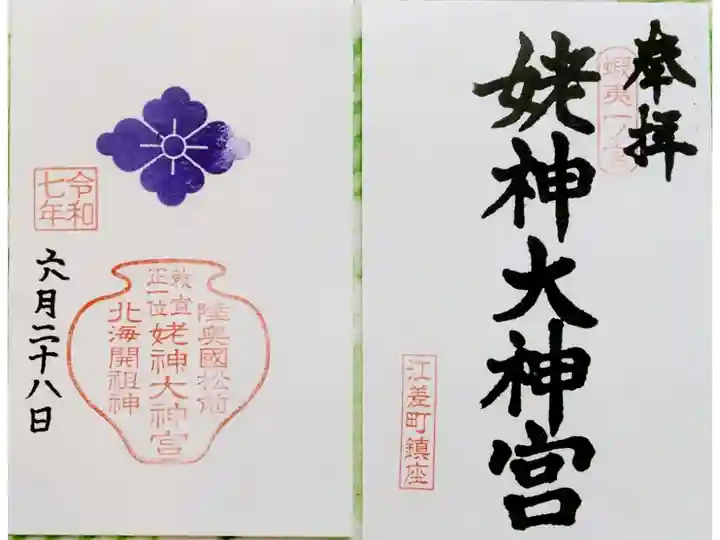 奉拝
蝦夷一ノ宮
姥神大神宮
江差町鎮座
令和
七年
六月二十八日
陸奥國松前
敕宣
正一位
姥神大神宮
北海開祖神